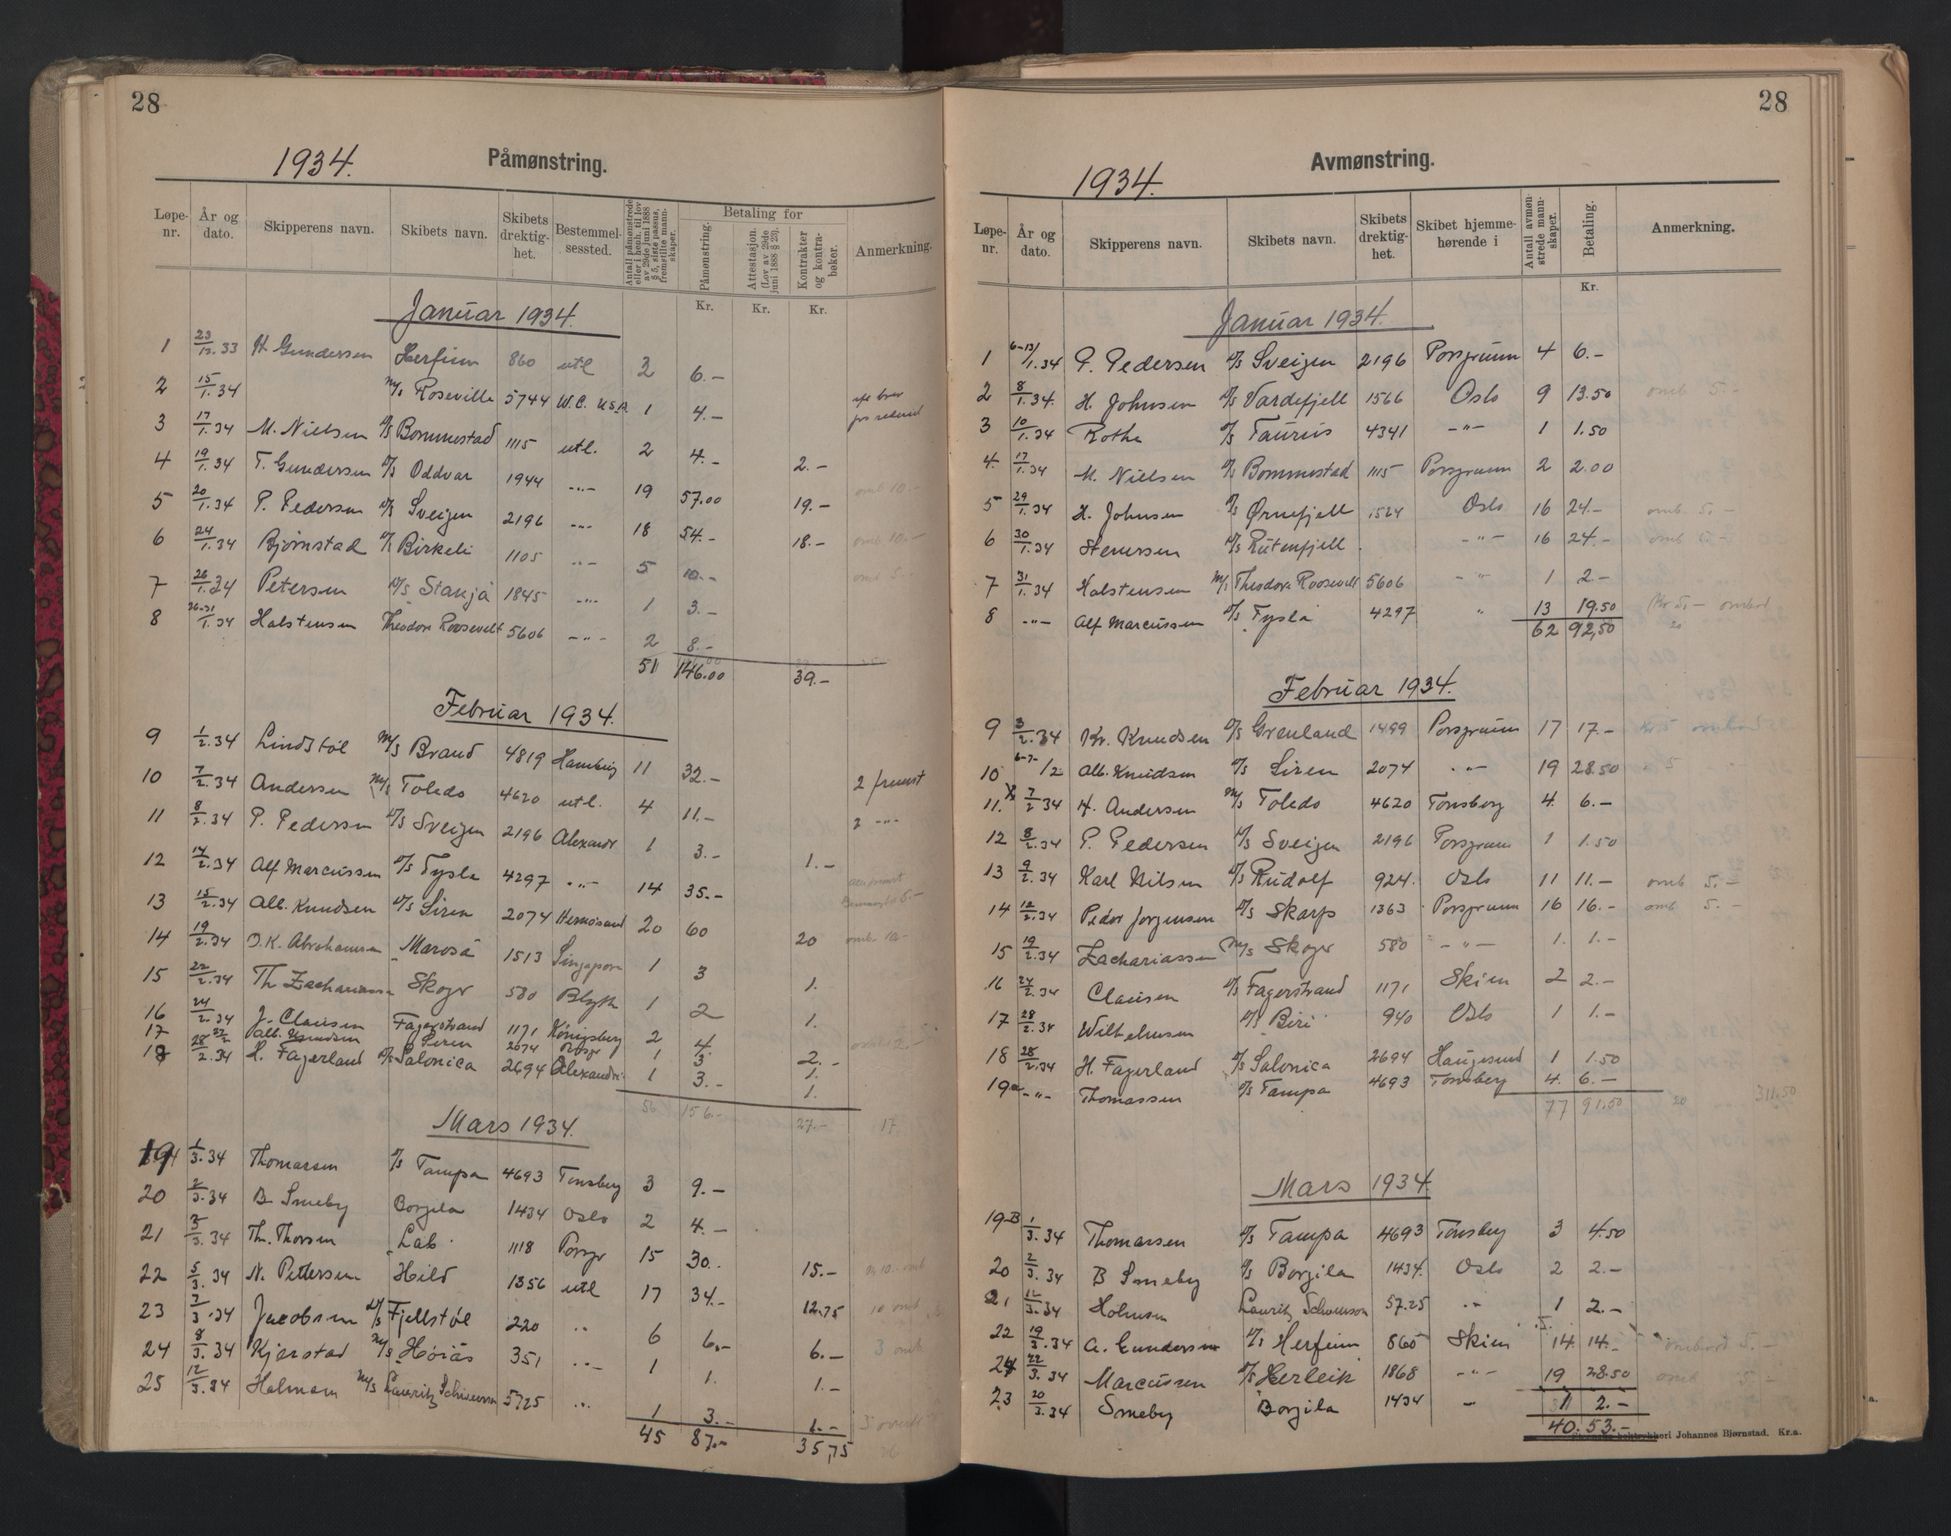 28
1934. Påmønstring.
Løpe-nr. | År og dato. | Skipperens navn. | Skibets navn. | Skibets drektig-het. | Bestemmel-sessted. | Antall påmønstrede eller i henh. til lov av 29de juni 1888 § 5, siste passus, fremstilte mann-skaper. | Betaling for | Påmønstring. | Attestasjon. (Lov av 29de juni 1888 § 23). | Kontrakter og kontra-bøker. | Anmerkning.
Kr. Kr. Kr.
Januar 1934.
1 23/12.33 H Gundersen Herfinn 860 utl 2 6.-
2 15/1.34 M/S Roseville 5744 W.C. USA. 1 4.-
3 17/1.34 M. Nielsen D/S Bommestad 1115 utl. 2 4.- 2.-
4 19/1.34 T. Gundersen D/S Oddvar 1944 -"- 19 57.00 19.- omb 10.-
5 20/1.34 P. Pedersen D/S Sveigen 2196 -"- 18 54.- 18.- omb 10.-
6 24/1.34 Bjørnstad D/S Birkeli 1105 -"- 5 10.-
7 26/1.34 Petersen D/S Stanja 1845 -"- 1 3.-
8 26-31/1.34 Halstensen Theodor Roosevelt 5606 -"- 2 8.-
51 146.00 39.-
Februar 1934.
9 1/2.34 Lindstøl M/S Brand 4819 Hamburg 11 32.-
10 7/2.34 Andersen M/S Toledo 4620 utl. 4 11.- 2 fremst
11 8/2.34 P. Pedersen D/S Sveigen 2196 Alexandr 1 3.- 1.- 2 -"-
12 14/2.34 Alf Marcussen D/S Tysla 4297 -"- 14 35.-
13 15/2.34 Alb. Knudsen D/S Siren 2074 Hernösand 20 60 20 omb. 10-
14 19/2.34 O.K. Abrahamsen Marosa 1513 Singapore 1 3 1.
15 22/2.34 Th Zachariassen Skoger 580 Blyth 1 2 1.
16 24/2.34 J. Clausen Fagerstrand 1171 Königsberg 2 4. 2.-
17 28/2 Alb. Knudsen Siren 2074 1 3 1.
18 28/2.34 H. Fagerland D/S Salonica 2694 Alexandri 1 3.- 1.
56 156.- 27.- 17.
Mars 1934.
19 1/3.34 Thomassen D/S Tampa 4693 Tønsberg 3 9.-
20 2/3.34 B Smeby Borgila 1434 Oslo 2 4.-
21 3/3.34 Th. Thorsen Lab 1118 Porsgr 15 30.- 15.-
22 5/3.34 N. Pettersen Hild 1356 utl 17 34.- 12.75 10 omb
23 7/3.34 Jacobsen D/S Fjellstøl 220 " 6 6.- 6.- 3 omb
24 8/3.34 Kjærstad M/S Høiås 351 "- 1 1. 1.-
25 12/3.34 Holmsen M/S Lauritz Schwenson 5725 " 1 3.- 1.-
45 87.- 35,75
28
1934. Avmønstring.
Løpe-nr. | År og dato. | Skipperens navn. | Skibets navn. | Skibets drektig-het. | Skibet hjemme-hørende i | Antall avmøn-strede mann-skaper. | Betaling. | Anmerkning.
Kr.
Januar 1934.
1 6-13/1.34 P. Pedersen D/S Sveigen 2196 Porsgrunn 4 6.-
2 8/1.34. H. Johnsen D/S Vardefjell 1566 Oslo 9 13.50 omb 5.-
3 10/1.34 Rothe D/S Taurus 4341 -"- 1 1.50
4. 17/1.34 M. Nielsen D/S Bommestad 1115 Porsgrunn 2 2.00
5 29/1.34 H. Johnsen D/S Ørnefjell 1524 Oslo 16 24.- omb. 5.-
6 30/1.34 Stenersen D/S Rutenfjell -"- 16 24.- omb 5.-
7 31/1.34 Halstensen M/S Theodor Roosevelt 5606 -"- 1 2.-
8 -"- Alf Marcussen D/S Tysla 4297 " 13 19.50 Kr 5.- ombord
62 92,50 20
Februar 1934.
9 3/2.34 Kr. Knudsen D/S Grenland 1499 Porsgrunn 17 17.- Kr 5 ombord
10 6-7-/2 Alb. Knudsen D/S Siren 2074 -"- 19 28.50 " 5 "
11. 7/2 34 H. Andersen M/S Toledo 4620 Tønsberg 4. 6.-
12 8/2.34 P. Pedersen D/S Sveigen 2196 Porsgrunn 1 1.50
13 9/2.34 Karl Nilsen D/S Rudolf 924. Oslo 11 11.- omb 5.-
14 12/2.34 Peder Jørgensen D/S Skarp 1363 Porsgrunn 16 16.- omb 5.-
15 19/2.34 Zachariassen M/S Skoger 580 -"- 1. 1.-
16 24/2.34 Clausen D/S Fagerstrand 1171 Skien 2 2.-
17 28/2.34 Wilhelmsen D/S Biri 940 Oslo 1 1.-
18 28/2.34 H. Fagerland D/S Salonica 2694 Haugesund 1 1.50
19a -"- Thomassen D/S Tampa 4693 Tønsberg 4. 6.-
77 91.50 20 311.50
Mars 1934.
19B 1/3.34 Thomassen D/S Tampa 4693 Tønsberg 3 4.50
20 2/3.34 B Smeby D/S Borgila 1434. Oslo 2 2.-
21 12/3.34 Holmsen Lauritz Schwenson 57.25 " 1 2.-
22 19/3.34 A. Gundersen D/S Herfinn 865 Skien 14. 14.- ombord 5.-
24 22/3.34 Marcussen D/S Herleik 1868 -"- 19 28.50 omb 5.-
23 20/3.34 Smeby Borgila 1434 - 1 2.-
40. 53.-
boktrykkeri Johannes Bjørnstad. Kr.a.